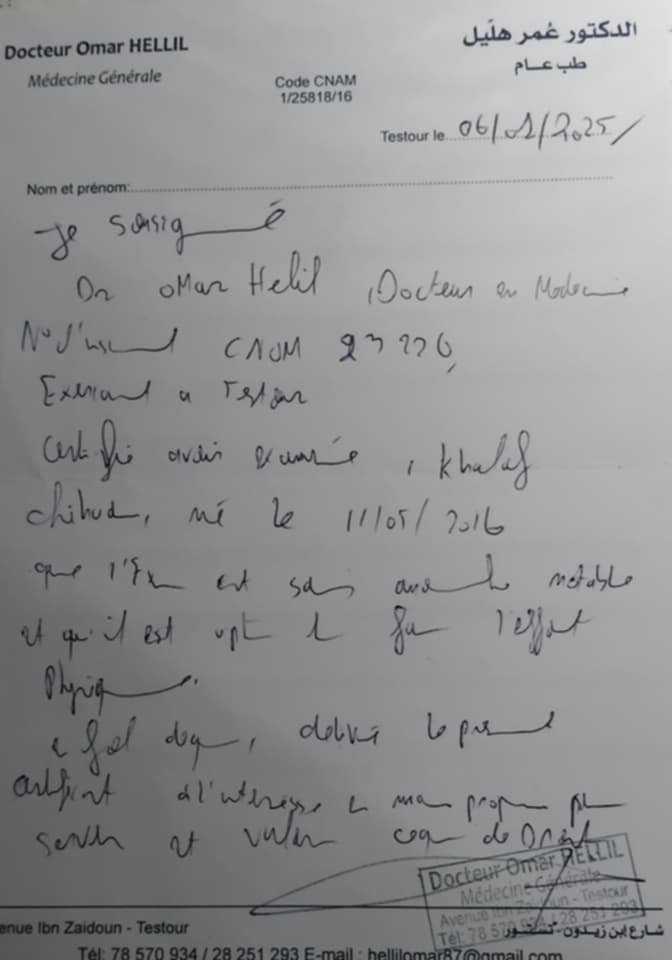 Docteur Omar HELLIL
الدكتور عُمر هلّيل
Médecine Générale
طب عـام
Code CNAM
1/25818/16
Testour le 06/01/2025/
Nom et prénom:
Je soussigné
Dr Omar Helil, Docteur en Medecine
N° d'inscri CNOM 23 226,
Exerçant a Testour
Certifie avoir examinée, Khalaf
né le 11/05/2016
que l'Ex est sain notable
et qu'il est apte faire l'effort
Physique.
délivré le present
certificat à l'interessé en main propre
servir et valoir de Droit
Docteur Omar HELLIL
Médecine Générale
Avenue Ibn Zaidoun - Testour
Tél: 78 570 934 / 28 251 293
enue Ibn Zaidoun - Testour
شارع ابن زيدون - تستور
Tél: 78 570 934 / 28 251 293 E-mail : hellilomar87@gmail.com